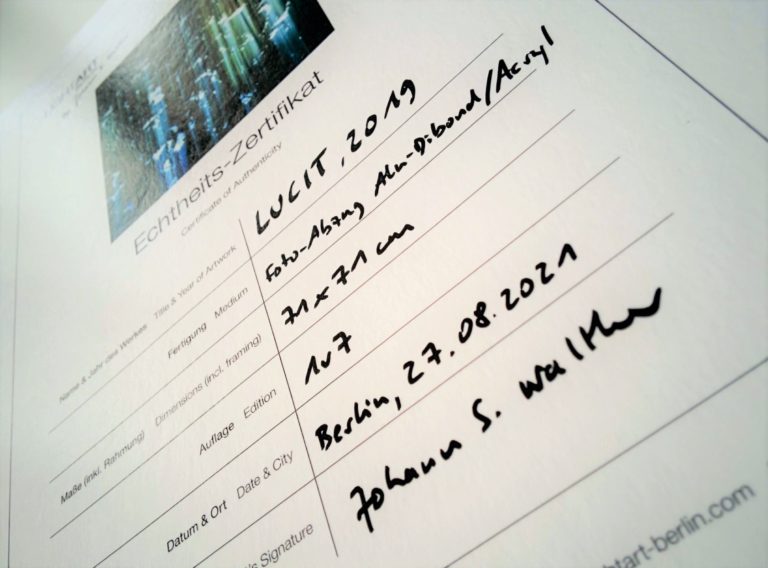 Echtheits-Zertifikat
Certificate of Authenticity
Name & Jahr des Werkes Title & Year of Artwork LUCIT, 2019
Fertigung Medium Foto-Abzug Alu-Dibond/Acryl
Maße (inkl. Rahmung) Dimensions (incl. framing) 71 x 71 cm
Auflage Edition 1v7
Datum & Ort Date & City Berlin, 27.08.2021
Signature Johann S. Walther
htart-berlin.com